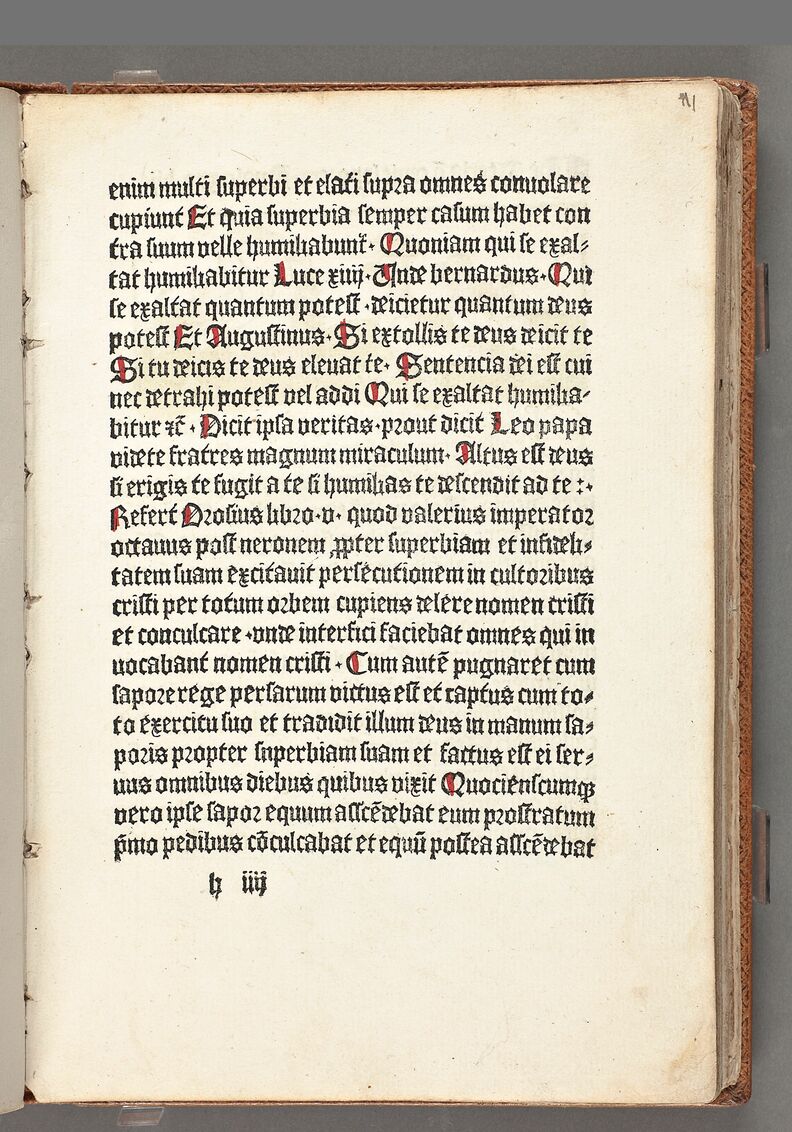 enim multi superbi et elati supra omnes conuolare
cupiunt Et quia superbia semper casum habet con
tra suum velle humiliabunt᷑· Quoniam qui se exal⸗
tat humiliabitur Luce xiiij· Unde bernardus· Qui
se exaltat quantum potest ·deicietur quantum deus
potest Et Augustinus· Si extollis te deus deicit te
Si tu deicis te deus eleuat te· Sentencia dei est cui
nec detrahi potest vel addi Qui se exaltat humilia⸗
bitur ⁊c̄ · Dicit ipsa veritas·prout dicit Leo papa
videte fratres magnum miraculum· Altus est deus
si erigis te fugit a te si humilias te descendit ad te :·
Refert Orosius libro·v· quod valerius imperator
octauus post neronem ꝓpter superbiam et infideli⸗
tatem suam excitauit persecutionem in cultoribus
cristi per totum orbem cupiens delere nomen cristi
et conculcare ·vnde interfici faciebat omnes qui in
uocabant nomen cristi · Cum autē pugnaret cum
sapore rege persarum victus est et captus cum to⸗
to exercitu suo et tradidit illum deus in manum sa⸗
poris propter superbiam suam et factus est ei ser⸗
uus omnibus diebus quibus vixit Quocienscumqꝫ
vero ipse sapor equum asscēdebat eum prostratum
p̄mo pedibus cōculcabat et equū postea asscēdebat
h iiij